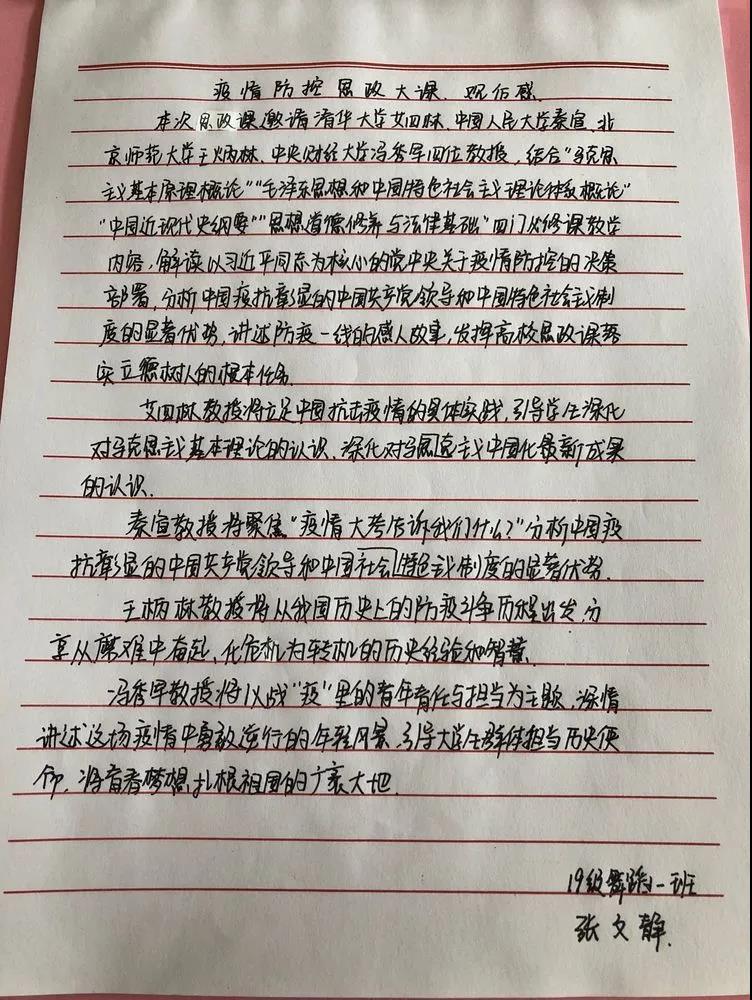 疫情防控思政大课.观后感.
本次思政课邀请清华大学艾四林、中国人民大学秦宣、北
京师范大学王炳林、中央财经大学冯秀军四位教授，结合"马克思
主义基本原理概论""毛泽东思想和中国特色社会主义理论体系概论"
"中国近现代史纲要""思想道德修养与法律基础"四门必修课教学
内容，解读以习近平同志为核心的党中央关于疫情防控的决策
部署，分析中国疫抗彰显的中国共产党领导和中国特色社会主义制
度的显著优势，讲述防疫一线的感人故事，发挥高校思政课落
实立德树人的根本任务.
艾四林教授将立足中国抗击疫情的具体实践，引导学生深化
对马克思主义基本理论的认识、深化对马克思主义中国化最新成果
的认识.
秦宣教授将聚焦"疫情大考告诉我们什么？"分析中国疫
抗彰显的中国共产党领导和中国社会特色主义制度的显著优势.
王柄林教授将从我国历史上的防疫斗争历程出发，分
享从磨难中奋起、化危机为转机的历史经验和智慧.
冯秀军教授将以战"疫"里的青年责任与担当为主题，深情
讲述这场疫情中勇敢逆行的年轻风景，引导大学生群体担当历史使
命，将青春梦想扎根祖国的广袤大地.
19级舞蹈一班
张文静.